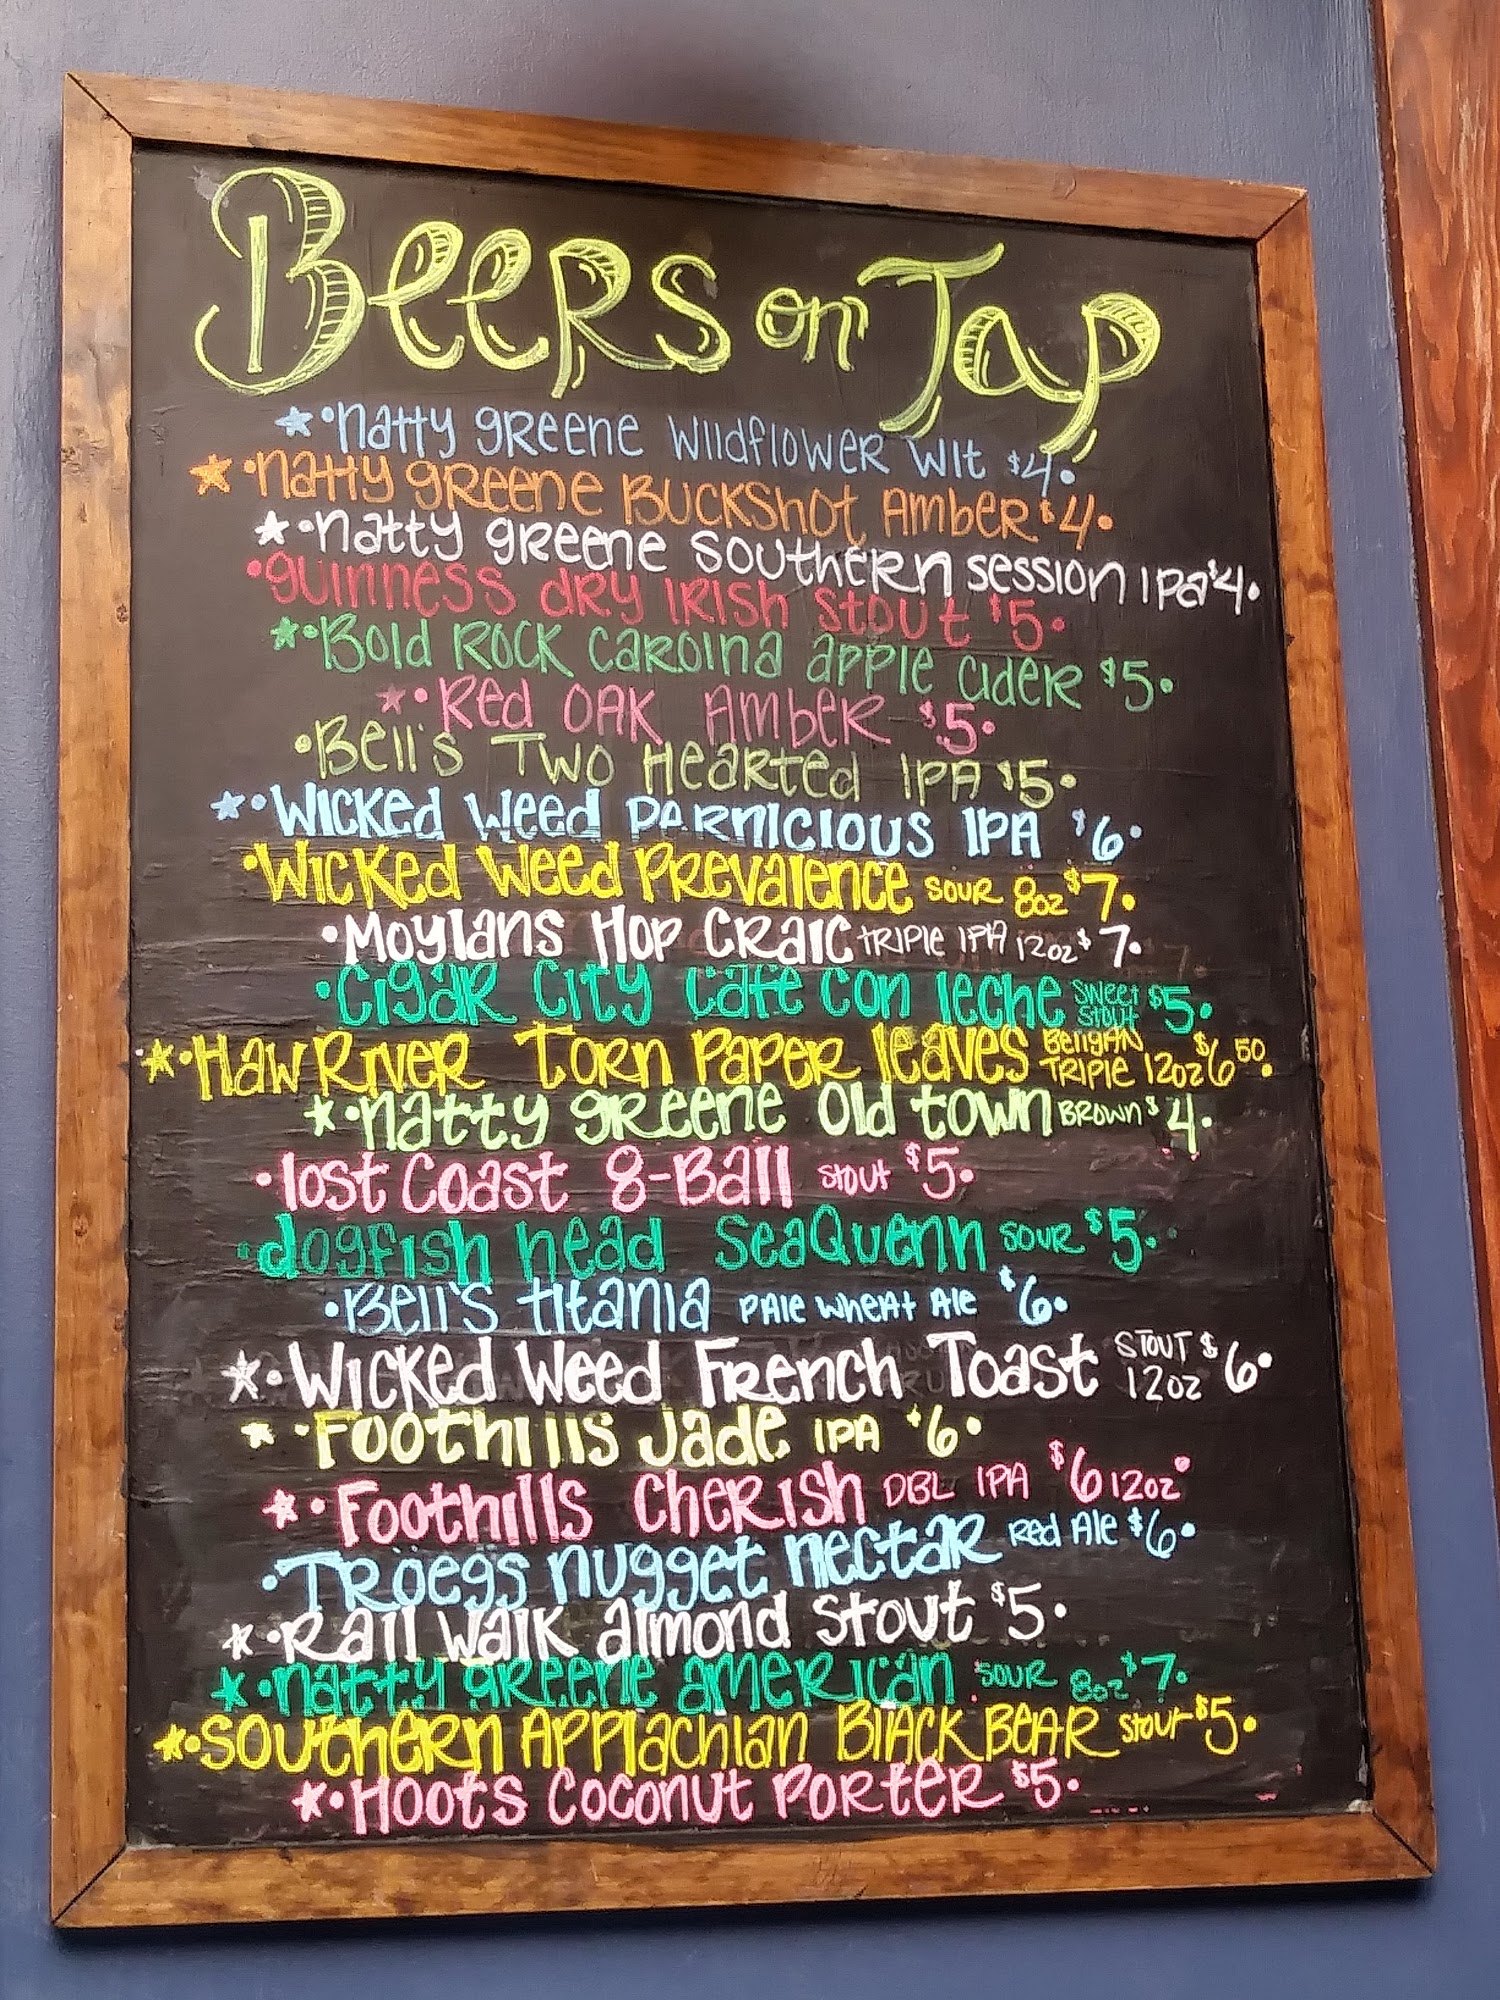 Beers on Tap
★•natty greene wildflower wit $4•
★•natty greene Buckshot Amber $4•
★•natty greene southern session IPA $4•
•guinness dry Irish stout $5•
★•Bold Rock Caroina apple cider $5•
★•Red OAK Amber $5•
•Bell's Two Hearted IPA $5•
★•Wicked Weed Pernicious IPA $6•
•Wicked Weed Prevalence sour 8oz $7•
•Moylans Hop Craic Triple IPA 12oz $7•
•Cigar City Cafe con leche sweet stout $5•
★•Haw River Torn Paper leaves Belgian Triple 12oz $6 50•
★•natty greene Old town Brown $4•
•lost Coast 8-Ball stout $5•
•dogfish head SeaQuenn sour $5•
•Bell's titania Pale wheat Ale $6•
★•Wicked Weed French Toast Stout 12oz $6•
★•Foothills Jade IPA $6•
★•Foothills Cherish DBL IPA $6 12oz•
•Tröegs nugget nectar Red Ale $6•
★•Rail walk almond stout $5•
★•natty greene american sour 8oz $7•
★•Southern Applachian Black Bear stout $5•
★•Hoots Coconut Porter $5•